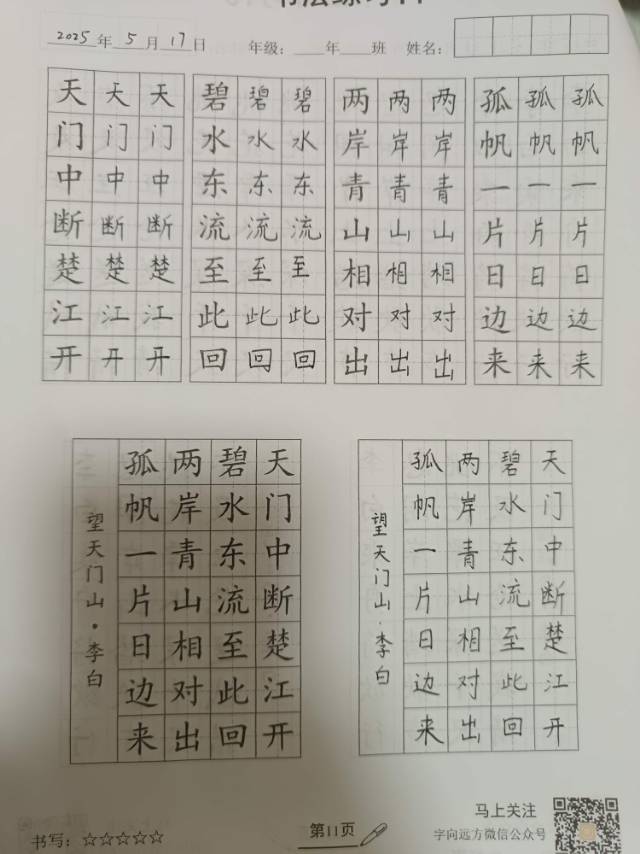 2025年5月17日 年级：____年____班 姓名：
天天天 碧碧碧 两两两 孤孤孤
门门门 水水水 岸岸岸 帆帆帆
中中中 东东东 青青青 一一一
断断断 流流流 山山山 片片片
楚楚楚 至至至 相相相 日日日
江江江 此此此 对对对 边边边
开开开 回回回 出出出 来来来
天门中断楚江开
碧水东流至此回
两岸青山相对出
孤帆一片日边来
望天门山·李白
天门中断楚江开
碧水东流至此回
两岸青山相对出
孤帆一片日边来
望天门山·李白
书写：☆☆☆☆☆
第11页
马上关注
字向远方微信公众号